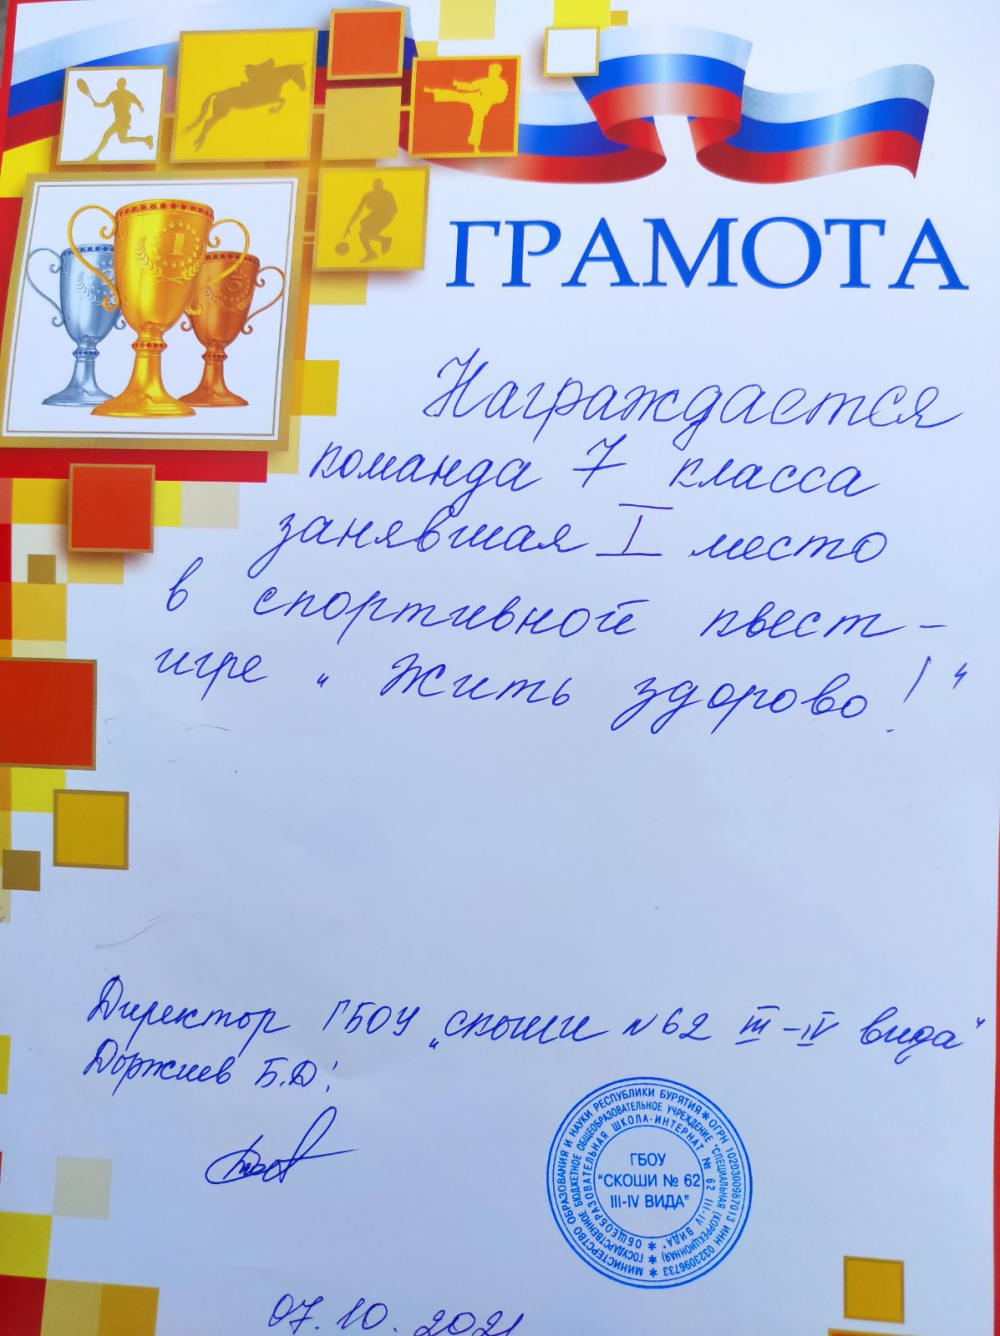 ГРАМОТА
Награждается
команда 7 класса
занявшая I место
в спортивной квест-
игре „ Жить здорово! “
Директор ГБОУ „СКОШИ №62 III-IV вида“
Доржиев Б.Д.
МИНИСТЕРСТВО ОБРАЗОВАНИЯ И НАУКИ РЕСПУБЛИКИ БУРЯТИЯ * ОГРН 1020300967013 ИНН 0323096733 *
ГОСУДАРСТВЕННОЕ БЮДЖЕТНОЕ ОБЩЕОБРАЗОВАТЕЛЬНОЕ УЧРЕЖДЕНИЕ "СПЕЦИАЛЬНАЯ (КОРРЕКЦИОННАЯ) *
ОБЩЕОБРАЗОВАТЕЛЬНАЯ ШКОЛА-ИНТЕРНАТ № 62 III-IV ВИДА" *
ГБОУ
"СКОШИ № 62
III-IV ВИДА"
07.10.2021